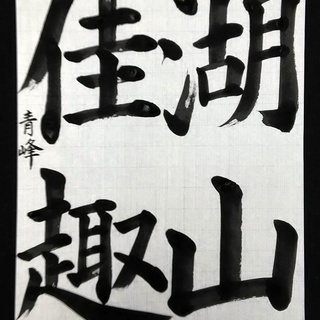 湖山
佳趣
青峰